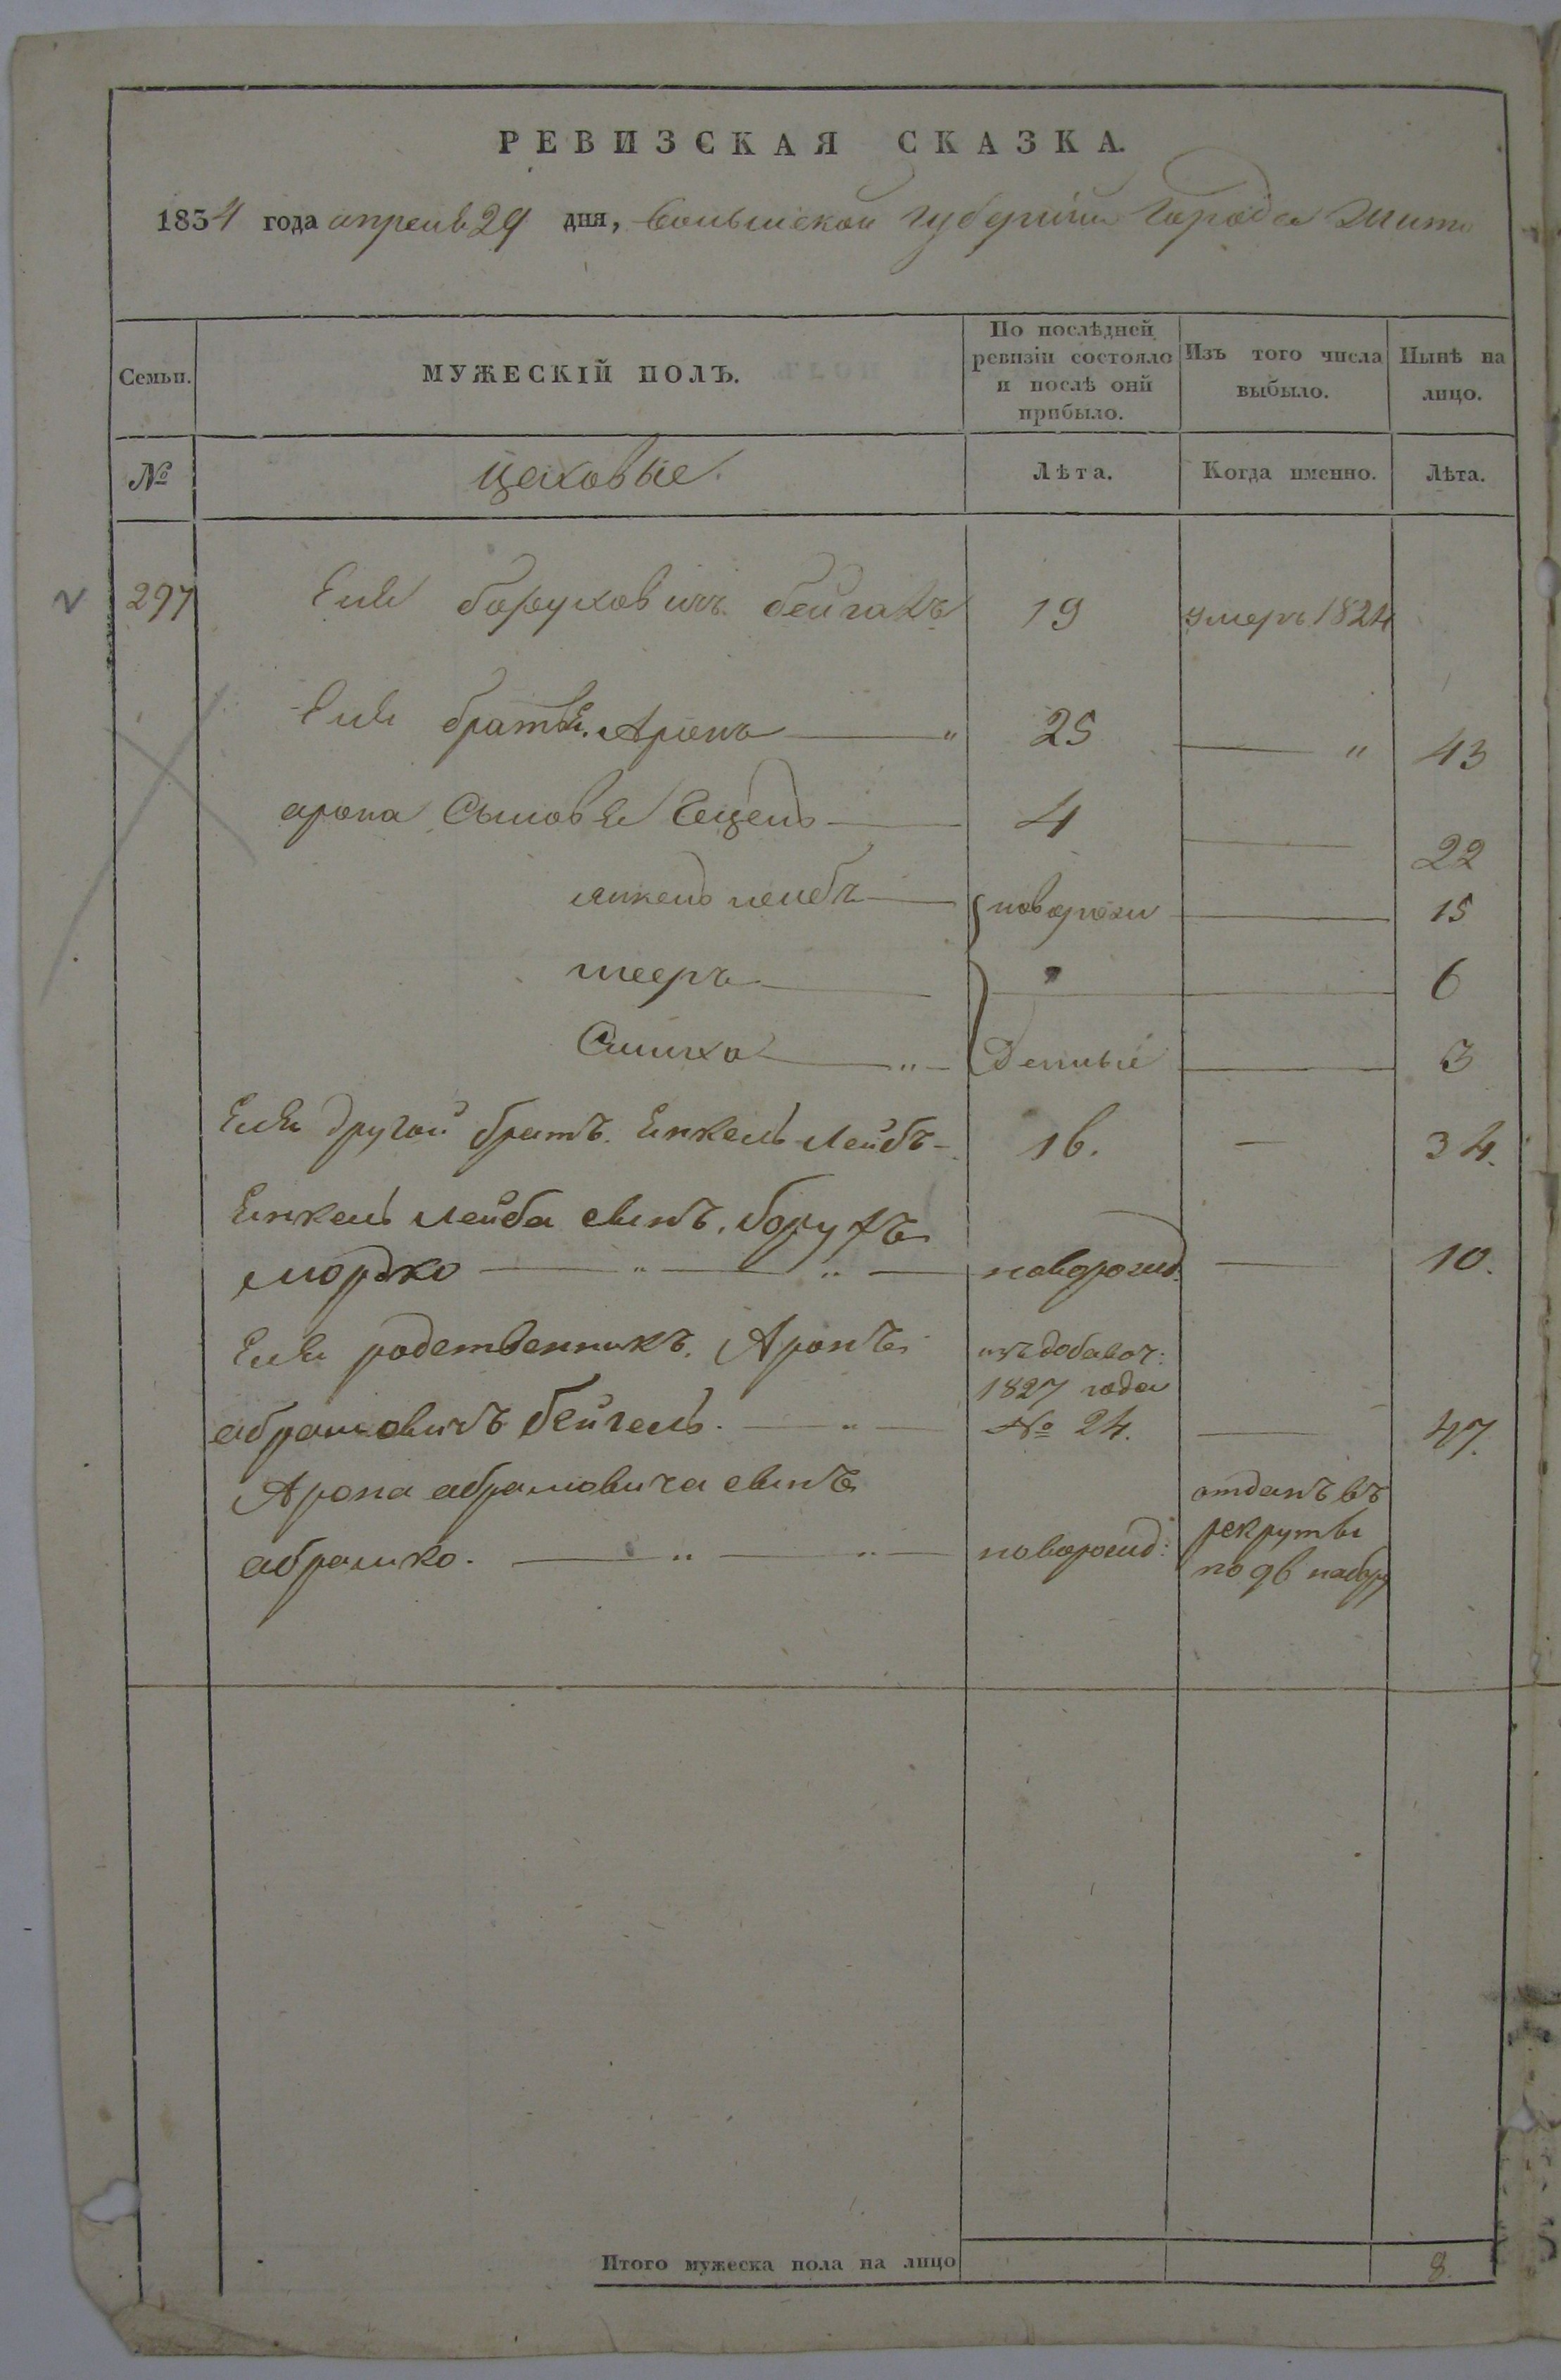 РЕВИЗСКАЯ СКАЗКА.
1834 года апреля 29 дня, Волынской губернии города Жито
Семьи.
МУЖЕСКІЙ ПОЛЪ.
По послѣдней ревизіи состояло и послѣ оній прибыло.
Изъ того числа выбыло.
Нынѣ на лицо.
№
цеховые.
Лѣта.
Когда именно.
Лѣта.
297 Еля боруховичъ бейгалъ 19 умеръ 1824
Еля братья. Аронъ — " 25 — " 43
арона Сыновья 4 — 22
янкель лейбъ — новорожи — 15
мееръ — " — 6
Симха — " — денные — 3
Еля другой братъ. Янкель Лейбъ — 16. — 34.
Янкель Лейба сынъ. борухъ
мордко — " — " — новорожд. — 10.
Еля родственникъ. Аронъ изъ добавоч:
1827 года
абрамовичъ бейгель. — " — № 24. — 47.
Арона абрамовича сынъ отданъ въ
рекруты
абрамко. — " — " — новорожд: по 96 набру
Итого мужеска пола на лицо 8.